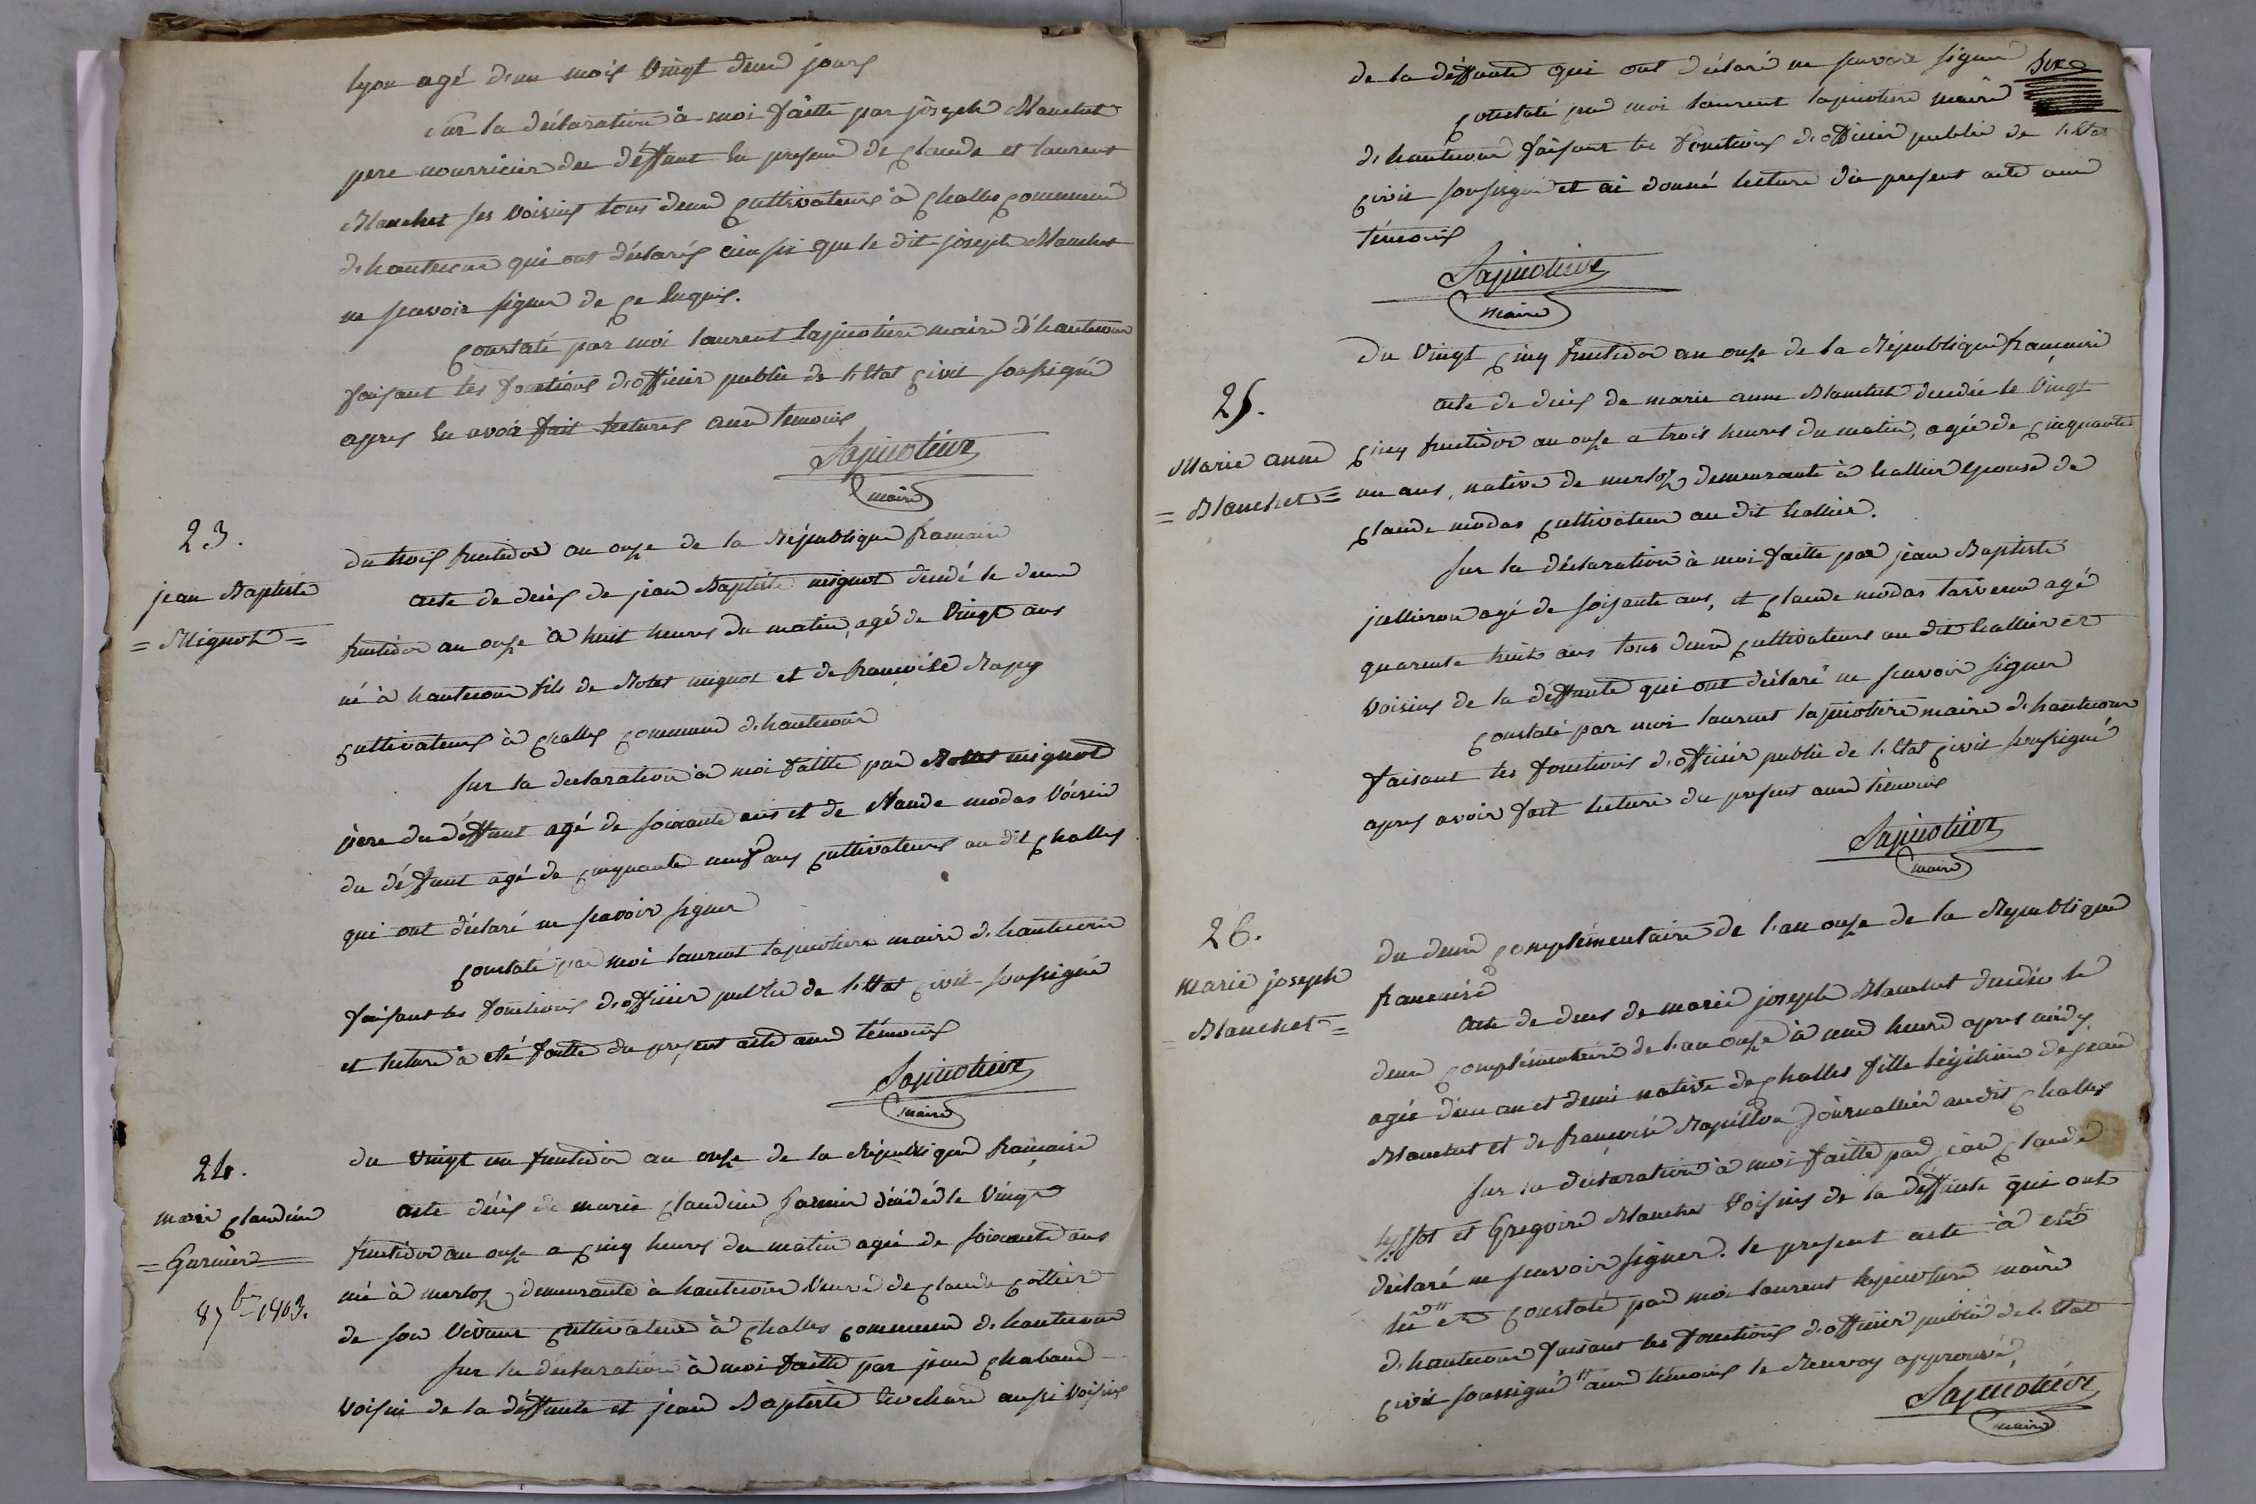 lyon agé d'un mois vingt deux jours
Sur la déclaration à moi faitte par joseph Blanchet
pere nourricier du deffunt en presence de Claude et laurent
Blanchet ses voisins tous deux Cultivateurs à Challes Commune
d'hautecour qui ont déclarés ainsi que le dit joseph Blanchet
ne scavoir signer de ce Enquis.
Constaté par moi laurent lapicotiere maire d'hautecour
faisant les fonctions d'officier public de l'Etat Civil soussigné
apres En avoir fait lectures aux temoins
Lapicotiere
maire
23.
jean Baptiste
= Mignot =
du trois fructidor an onze de la République francaise
acte de décès de jean Baptiste mignot decedé le deux
fructidor an onze à huit heures du matin, agé de vingt ans
né à hautecour fils de mignot et de francoise
Cultivateurs à Challes Commune d'hautecour
sur la declaration à moi faitte par mignot
père du déffunt agé de soixante ans et de Claude modas voisin
du déffunt agé de cinquante neuf ans Cultivateurs au dit Challes
qui ont déclaré ne scavoir signer
Constaté par moi laurent lapicotiere maire d'hautecour
faisant les fonctions d'officier public de l'Etat Civil soussigné
et lecture à eté faitte du present acte aux témoins
Lapicotiere
maire
24.
marie Claudine
= Garnier =
8 7bre 1803.
du vingt un fructidor an onze de la République francaise
acte décès de marie Claudine Garnier décédé le vingt
fructidor an onze a Cinq heures du matin agée de soixante ans
né à merloz demeurante à hautecour veuve de Claude Cottier
de son vivant Cultivateur à Challes Commune d'hautecour
sur la déclaration à moi faitte par jean Chaband
voisin de la déffunte et jean Baptiste aussi voisin
de la déffunte qui ont déclaré ne scavoir signer
Constaté par moi laurent lapicotiere maire
d'hautecour faisant les fonctions d'officier public de l'Etat
Civil soussigné et ai donné lecture du present acte aux
témoins
Lapicotiere
maire
25.
Marie anne
= Blanchet =
Du vingt Cinq fructidor an onze de la République francaise
acte de décès de marie anne Blanchet decedée le vingt
Cinq fructidor an onze a trois heures du matin, agée de Cinquante
un ans, native de merloz demeurante à hallier Epouse de
Claude modas Cultivateur au dit hallier.
sur la déclaration à moi faitte par jean Baptiste
juilleron agé de soisante ans, et Claude modas agé
quarente huit ans tous deux Cultivateurs au dit hallier et
voisins de la déffunte qui ont déclaré ne scavoir signer
Constaté par moi laurent lapicotiere maire d'hautecour
faisant les fonctions d'officier public de l'Etat Civil soussigné
apres avoir fait lecture du present aux témoins
Lapicotiere
maire
26.
marie joseph
= Blanchet =
du deux Complémentaire de l'an onze de la République
francaise
Acte de deces de marie joseph Blanchet decedée le
deux Complémentaire de l'an onze à une heure apres midy
agée d'un an et demi native de Challes fille légitime de jean
Blanchet et de francoise journallier au dit Challes
sur la déclaration à moi faitte par jean Claude
et Gregoire Blanchet voisins de la déffunte qui ont
déclaré ne scavoir signer. le present acte à eté
lu et Constaté par moi laurent lapicotiere maire
d'hautecour faisant les fonctions d'officier public de l'Etat
Civil soussigné " aux témoins le Renvoy approuvé,
Lapicotiere
maire